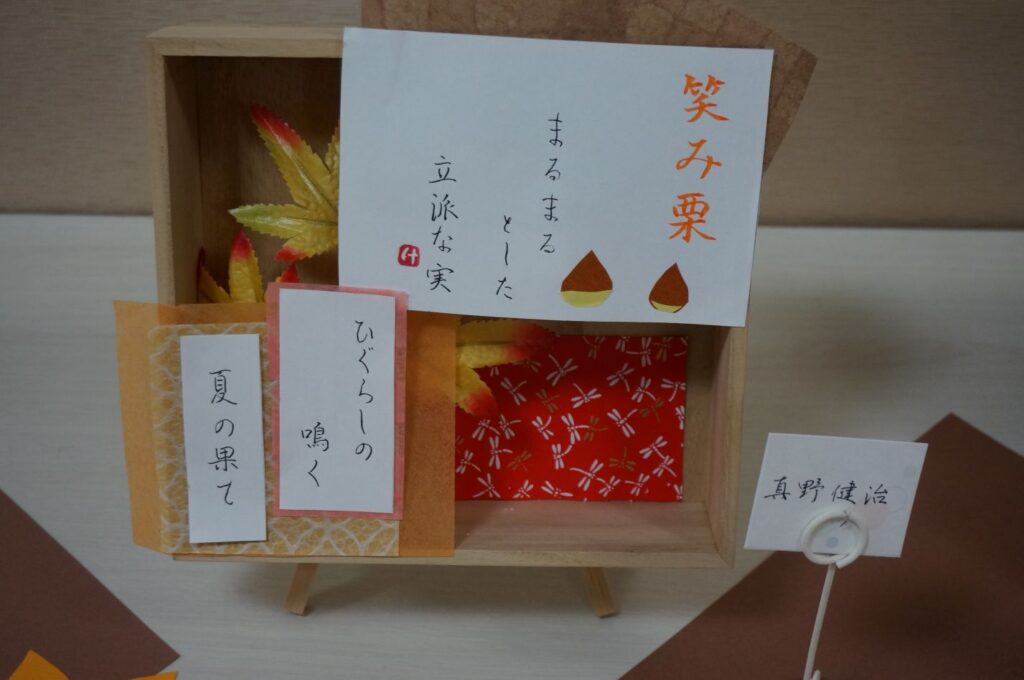 笑み栗
まるまる
とした
立派な実
け
ひぐらしの
鳴く
夏の果て
真野健治